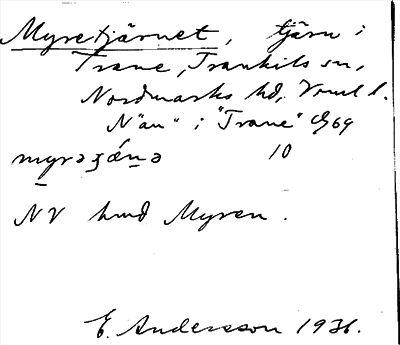 Myretjärnet, tjärn i
Trane, Trankils sn,
Nordmarks hd, Vrml l.
N "än" i "Trane" 69
myrəʒǽṉə 10
NV hmd Myren.
E. Andersson 1936.